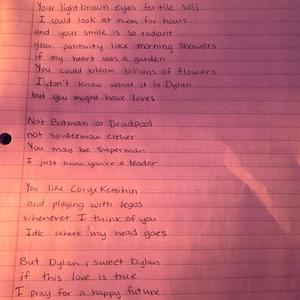 Your light brown eyes fertile soil
I could look at them for hours
and your smile is so radiant
your positivity like morning showers
if my heart was a garden
You could bloom billions of flowers
I don't know what it is Dylan
but you might have loves
Not Batman or Deadpool
not spiderman either
You may be superman
I just know you're a leader
You like CoryxKenshin
and playing with legos
whenever I think of you
Idk where my head goes
But Dylan, sweet Dylan
if this love is true
I pray for a happy future